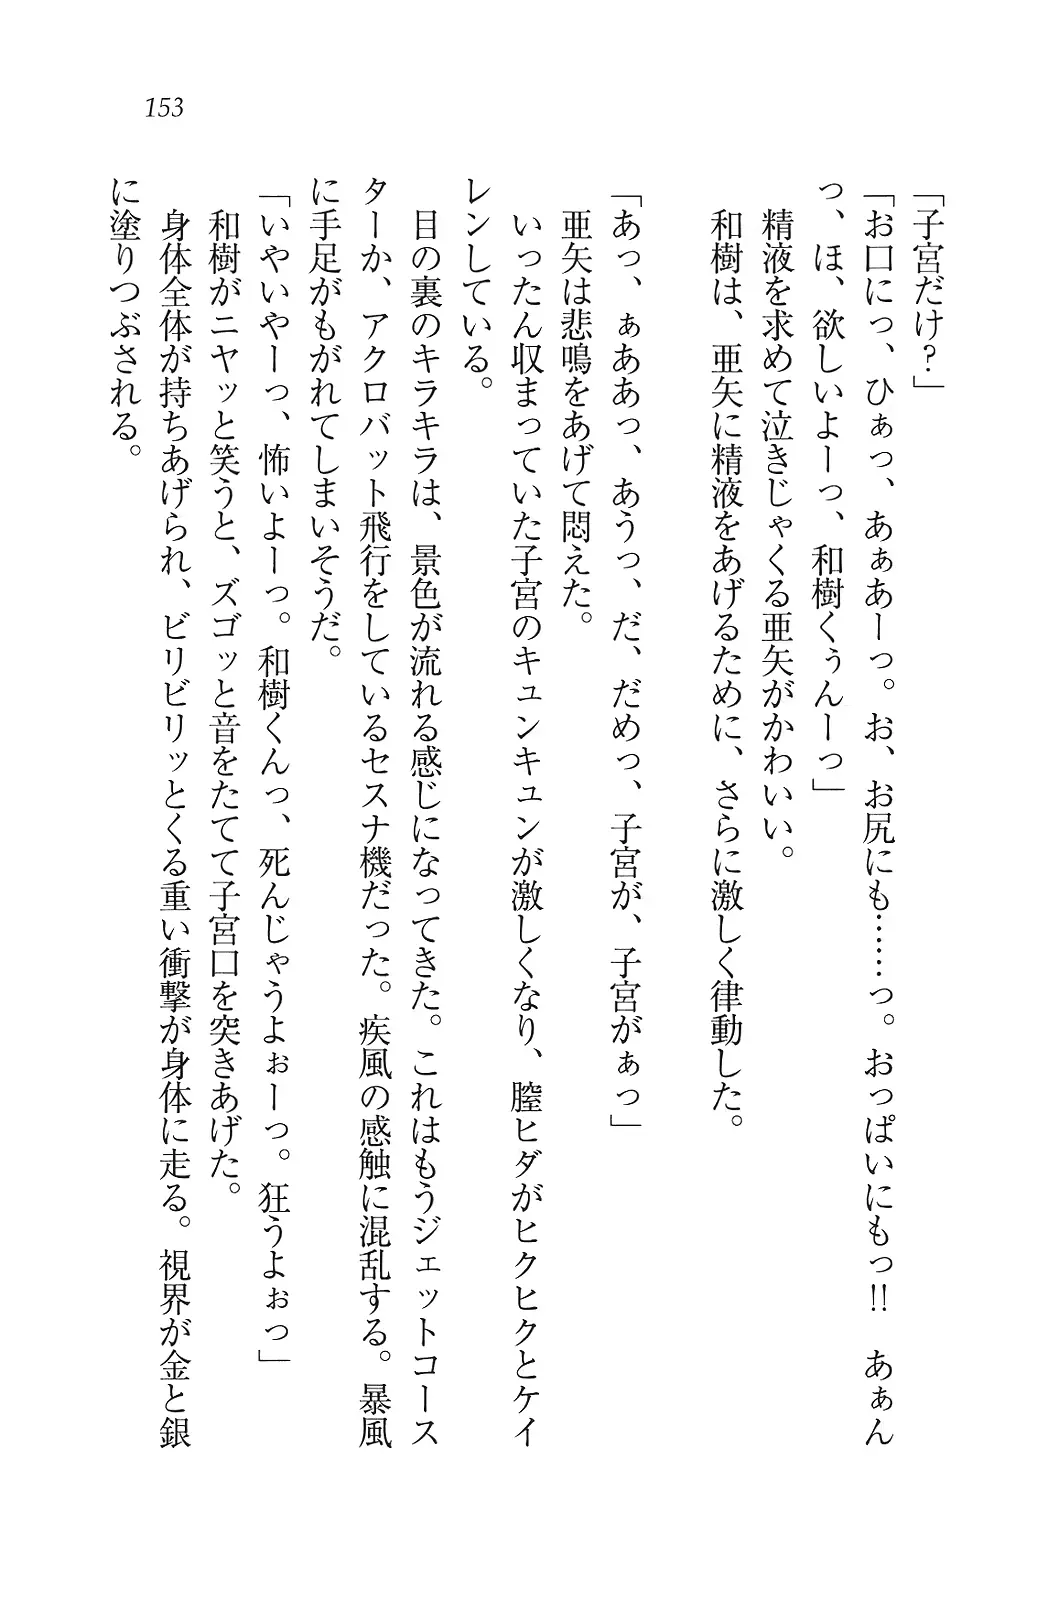 153
「子宮だけ？」
「お口にっ、ひぁっ、あぁあーっ。お、お尻にも……っ。おっぱいにもっ!!　あぁん
っ、ほ、欲しいよーっ、和樹くぅんーっ」
　精液を求めて泣きじゃくる亜矢がかわいい。
　和樹は、亜矢に精液をあげるために、さらに激しく律動した。
「あっ、ぁああっ、あうっ、だ、だめっ、子宮が、子宮がぁっ」
　亜矢は悲鳴をあげて悶えた。
　いったん収まっていた子宮のキュンキュンが激しくなり、膣ヒダがヒクヒクとケイ
レンしている。
　目の裏のキラキラは、景色が流れる感じになってきた。これはもうジェットコース
ターか、アクロバット飛行をしているセスナ機だった。疾風の感触に混乱する。暴風
に手足がもがれてしまいそうだ。
「いやいやーっ、怖いよーっ。和樹くんっ、死んじゃうよぉーっ。狂うよぉっ」
　和樹がニヤッと笑うと、ズゴッと音をたてて子宮口を突きあげた。
　身体全体が持ちあげられ、ビリビリッとくる重い衝撃が身体に走る。視界が金と銀
に塗りつぶされる。